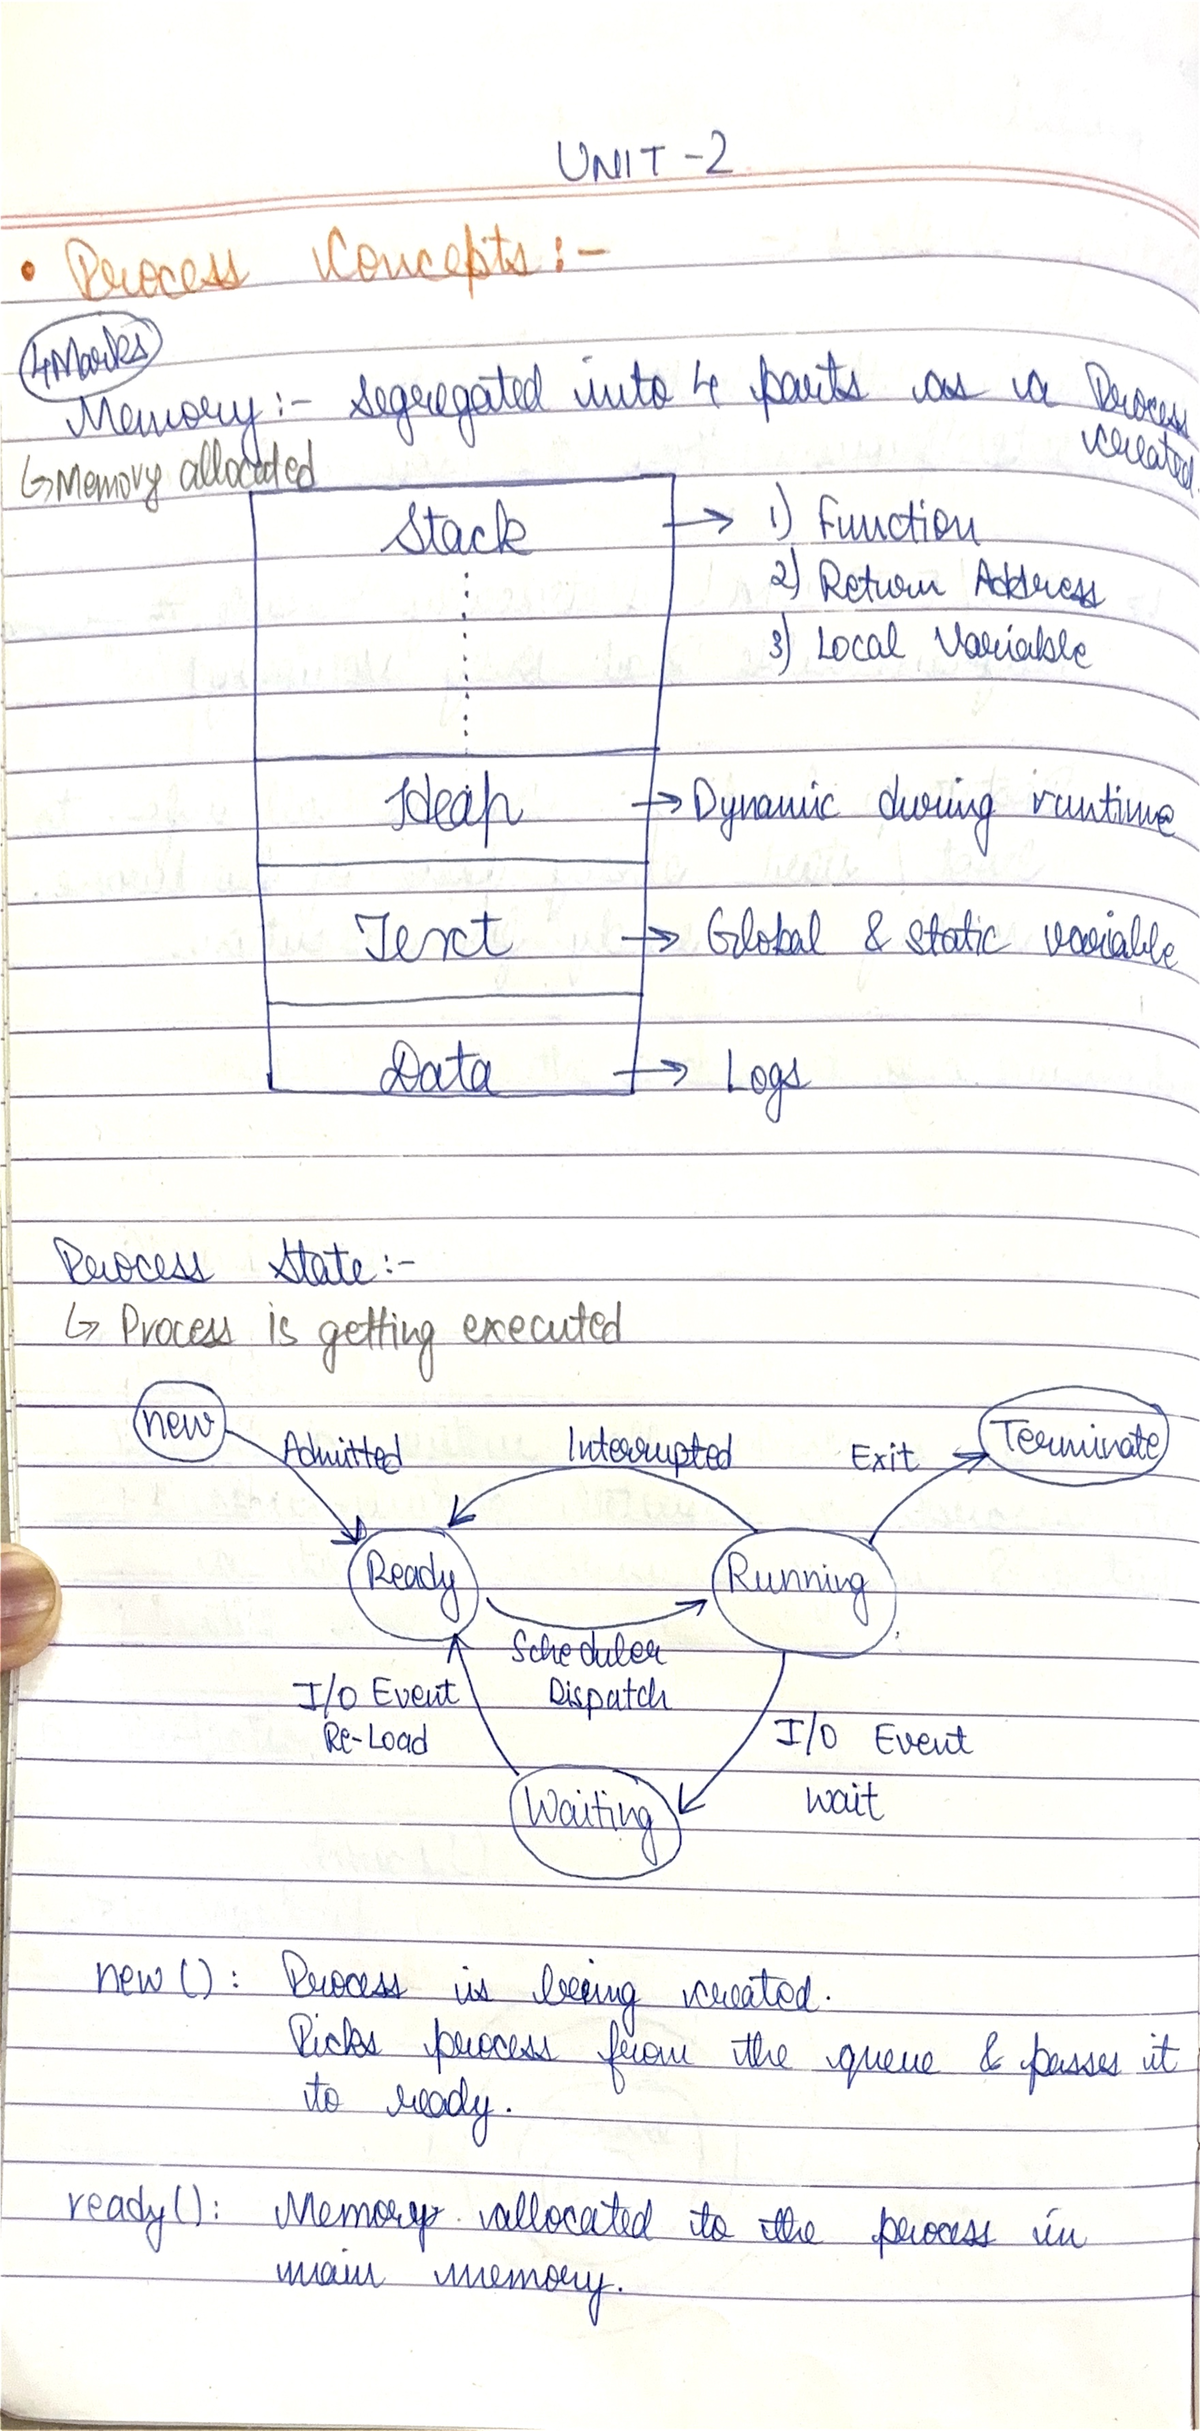 UNIT - 2
• Process Concepts :-
4 Marks
Memory :- Segregated into 4 parts as a Process
created.
↳ Memory allocated
Stack → 1) Function
2) Return Address
3) Local Variable
Heap → Dynamic during runtime
Text → Global & static variable
Data → Logs
Process State :-
↳ Process is getting executed
new
Admitted
Interrupted
Exit
Terminate
Ready
Running
Scheduler
Dispatch
I/O Event
Re-Load
I/O Event
wait
Waiting
new () : Process is being created.
Picks process from the queue & passes it
to ready.
ready () : Memory allocated to the process in
main memory.